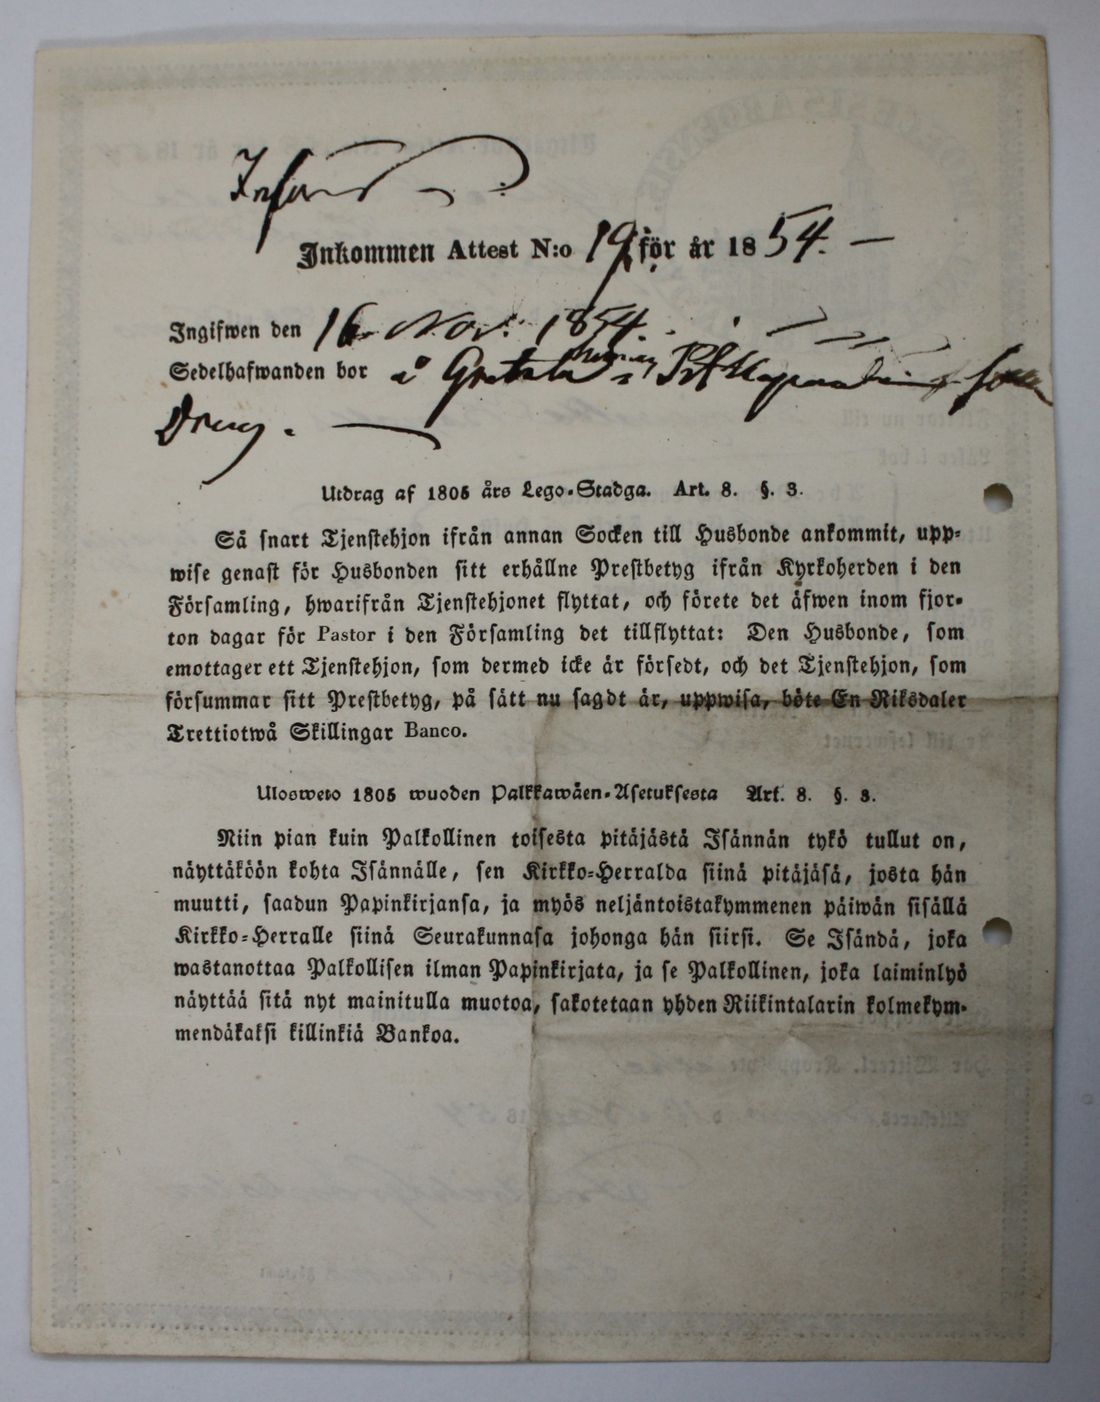 Införd
Inkommen Attest N:o 19 för år 1854.
Ingifwen den 16 Nov. 1854.
Sedelhafwanden bor i som
Dreng.
Utdrag af 1805 års Lego-Stadga. Art. 8. §. 3.
Så snart Tjenstehjon ifrån annan Socken till Husbonde ankommit, upp-
wise genast för Husbonden sitt erhållne Prestbetyg ifrån Kyrkoherden i den
Församling, hwarifrån Tjenstehjonet flyttat, och förete det äfwen inom fjor-
ton dagar för Pastor i den Församling det tillflyttat: Den Husbonde, som
emottager ett Tjenstehjon, som dermed icke är försedt, och det Tjenstehjon, som
försummar sitt Prestbetyg, på sätt nu sagdt är, uppwisa, böte En Riksdaler
Trettiotwå Skillingar Banco.
Ulosweto 1805 wuoden Palkkawäen-Asetuksesta Art. 8. §. 3.
Niin pian kuin Palkollinen toisesta pitäjästä Isännän tykö tullut on,
näyttäköön kohta Isännälle, sen Kirkko-Herralda siinä pitäjäsä, josta hän
muutti, saadun Papinkirjansa, ja myös neljäntoistakymmenen päiwän sisällä
Kirkko-Herralle siinä Seurakunnasa johonga hän siirsi. Se Isändä, joka
wastanottaa Palkollisen ilman Papinkirjata, ja se Palkollinen, joka laiminlyö
näyttää sitä nyt mainitulla muotoa, sakotetaan yhden Riikintalarin kolmekym-
mendäkaksi killinkiä Bankoa.